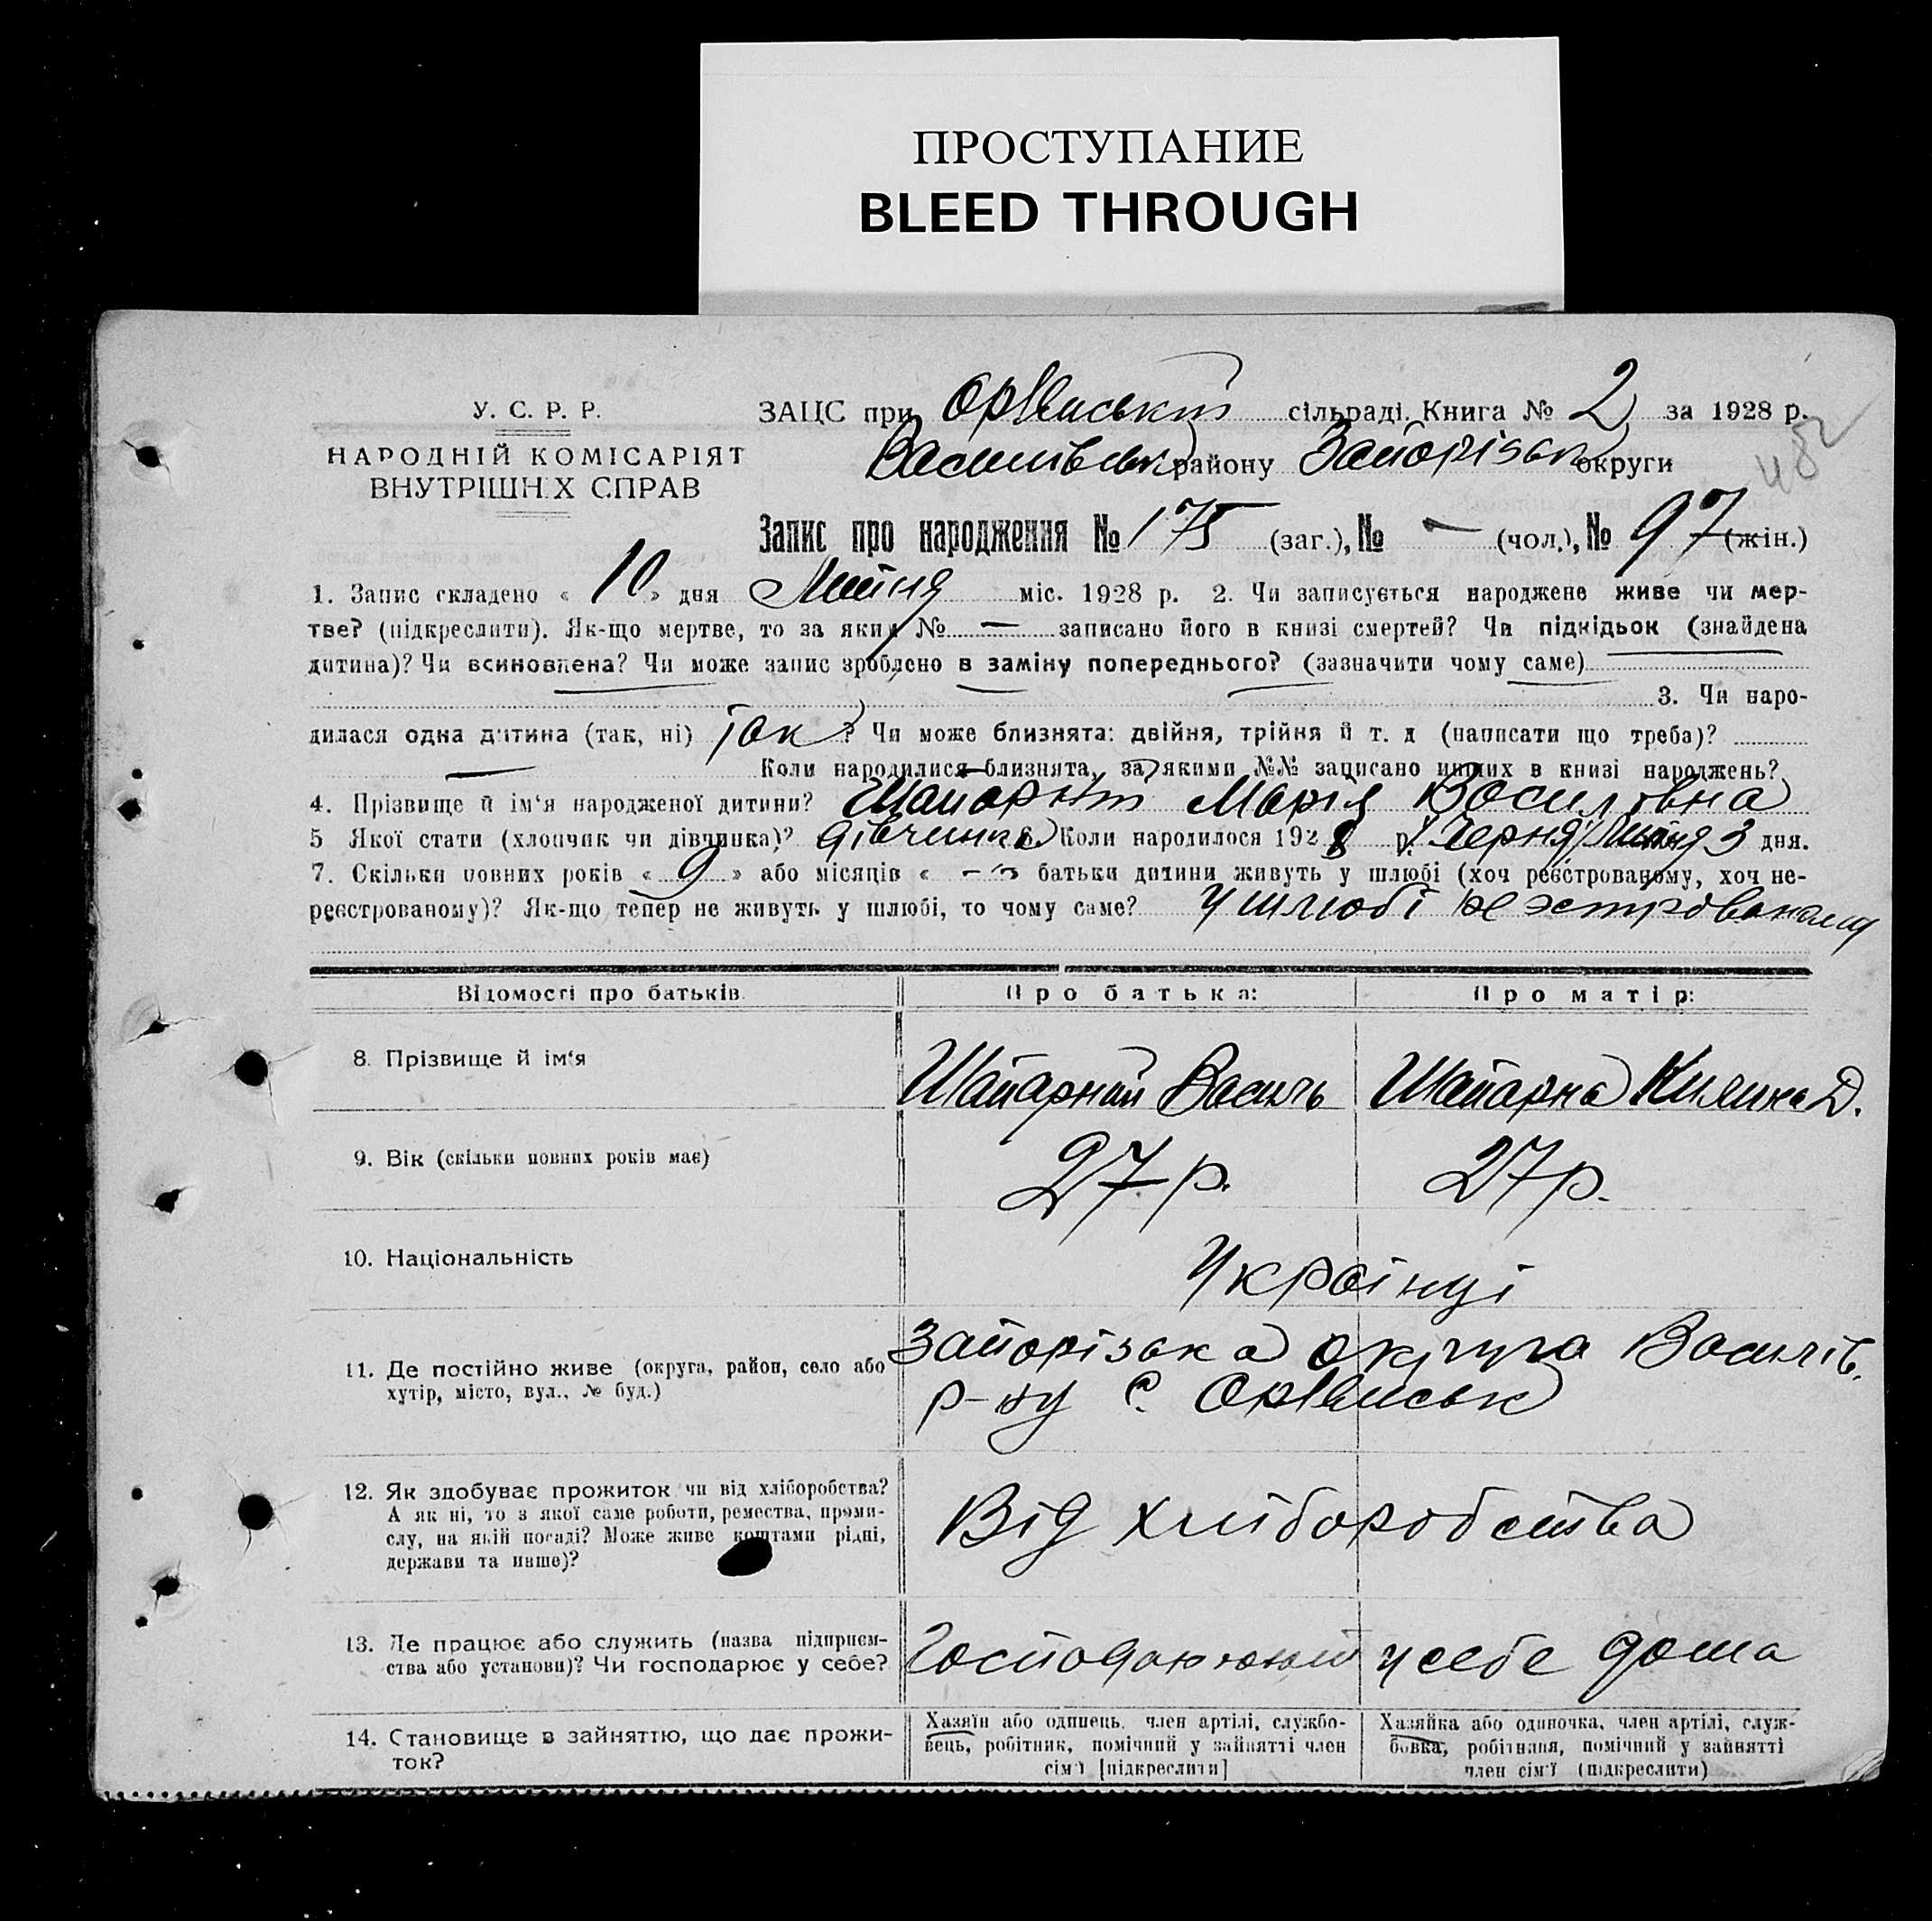 ПРОСТУПАНИЕ
BLEED THROUGH
У. С. Р. Р.
НАРОДНІЙ КОМІСАРІЯТ
ВНУТРІШНІХ СПРАВ
ЗАЦС при Оріянській сільраді. Книга № 2 за 1928 р.
482
Василівськ району Запорізьк округи
Запис про народження № 175 (заг.), № — (чол.), № 97 (жін.)
1. Запис складено « 10 » дня Липня міс. 1928 р. 2. Чи записується народжене живе чи мер-
тве? (підкреслити). Як-що мертве, то за яким № — записано його в книзі смертей? Чи підкідьок (знайдена
дитина)? Чи всиновлена? Чи може запис зроблено в заміну попереднього? (зазначити чому саме)
3. Чи наро-
дилася одна дитина (так, ні) Так ? Чи може близнята: двійня, трійня й т. д (написати що треба)?
— Коли народилися близнята, за якими №№ записано инших в книзі народжень?
4. Прізвище й ім'я народженої дитини? Шапарний Марія Василівна
5 Якої стати (хлопчик чи дівчинка)? дівчинка 6. Коли народилося 1928 р. Липня 3 дня.
7. Скільки повних років « 9 » або місяців « — » батьки дитини живуть у шлюбі (хоч реєстрованому, хоч не-
реєстрованому)? Як-що тепер не живуть у шлюбі, то чому саме? У шлюбі
Відомості про батьків
Про батька:
Про матір:
8. Прізвище й ім'я
Шапарний Василь
Шапарна Килина Д.
9. Вік (скільки повних років має)
27 р.
27 р.
10. Національність
Українці
11. Де постійно живе (округа, район, село або
хутір, місто, вул., № буд.)
Запорізька округа Василів.
р-ну с. Оріянськ
12. Як здобуває прожиток чи від хліборобства?
А як ні, то з якої саме роботи, ремества, проми-
слу, на якій посаді? Може живе коштами рідні,
держави та инше)?
Від хліборобства
13. Де працює або служить (назва підприєм-
ства або установи)? Чи господарює у себе?
Господарюють у себе дома
14. Становище в зайняттю, що дає прожи-
ток?
Хазяїн або одинець, член артілі, службо-
вець, робітник, помічний у зайнятті член
сім'ї [підкреслити]
Хазяйка або одиночка, член артілі, служ-
бовка, робітниця, помічний у зайнятті
член сім'ї (підкреслити)